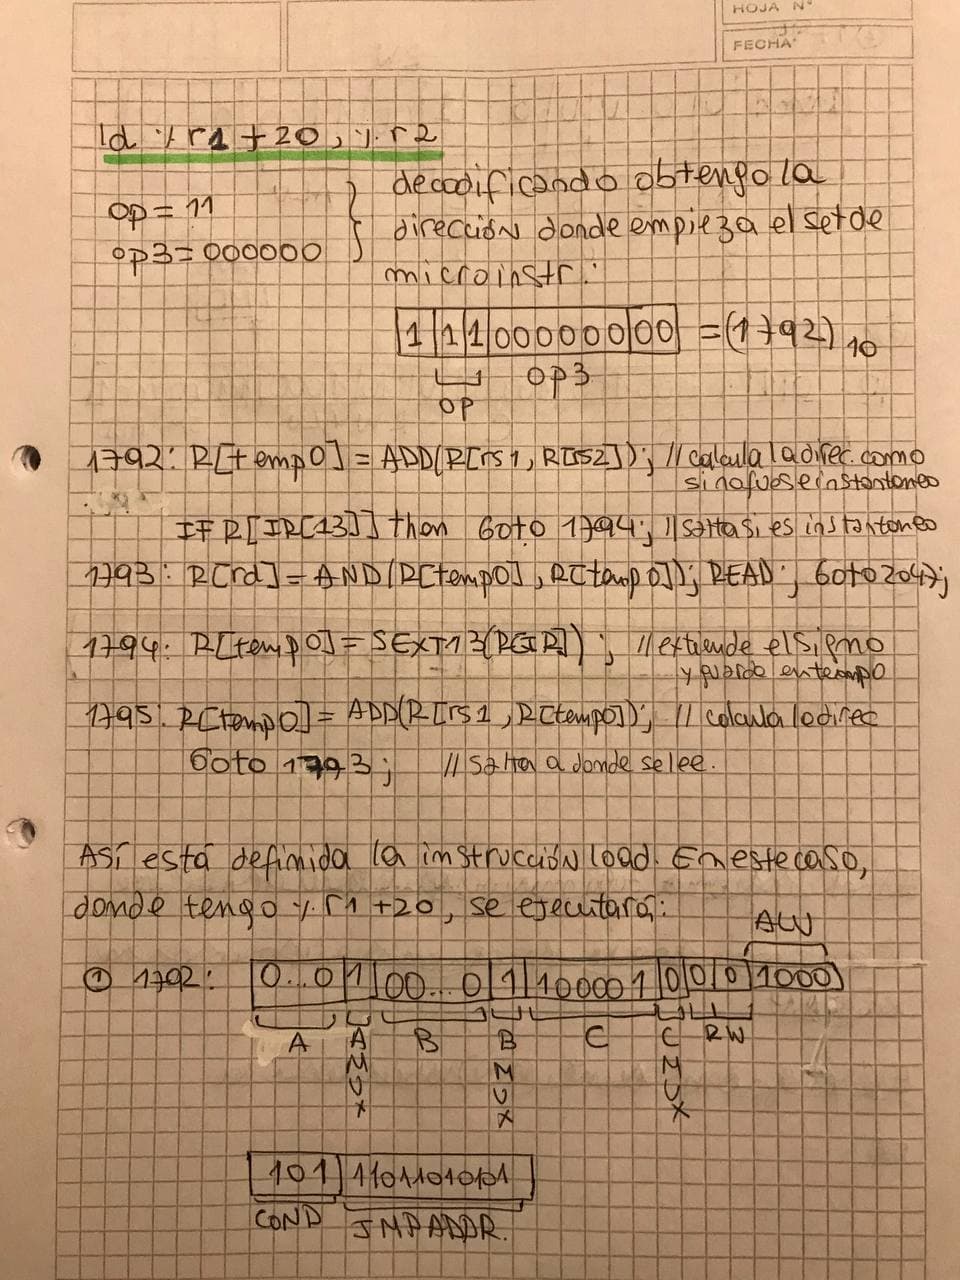 HOJA N°
FECHA:
ld % r1 + 20, % r2
op = 11
op3 = 000000
decodificando obtengo la
dirección donde empieza el set de
microinstr.:
1 1 1 000000 00 = (1792)10
OP
OP3
1792: R[temp0] = ADD(R[rs1, R[rs2]); // calcula la direc. como
si no fuose instantaneo
IF R[IR[13]] then Goto 1794; // salta si es instantaneo
1793: R[rd] = AND(R[temp0], R[temp0]); READ; Goto 2047;
1794: R[temp0] = SEXT13(R[IR]); // extiende el signo
y guarda en tempo
1795: R[temp0] = ADD(R[rs1, R[temp0]); // calcula la direc
Goto 1793; // Salta a donde se lee.
Así está definida la instrucción load. En este caso,
donde tengo %r1 +20, se ejecutará:
ALU
① 1792: 0...0 1 00...0 1 100001 0 0 0 1000
A AMUX B BMUX C CMUX RW
101
COND JMP ADDR.